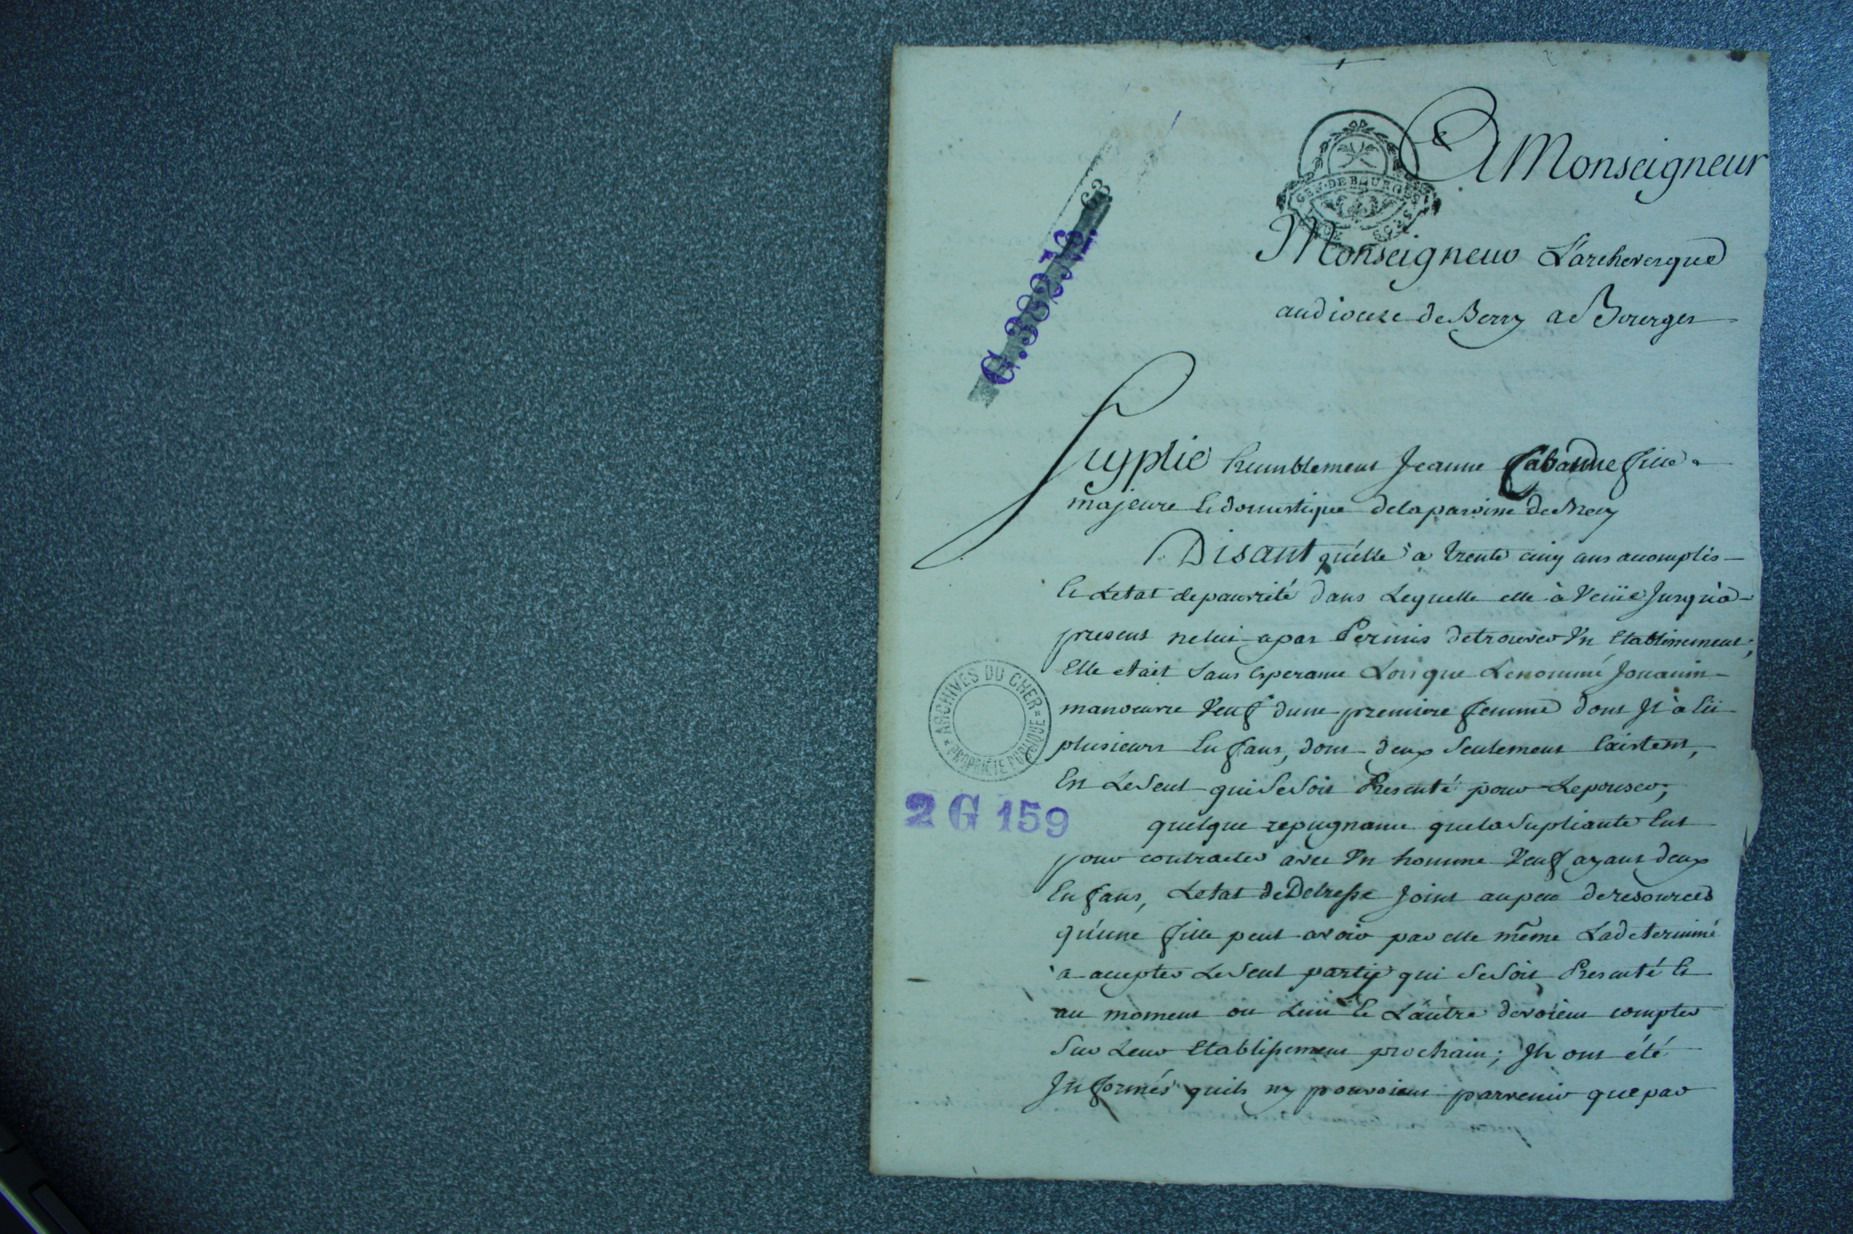 A Monseigneur
GEN. DE BOURGES
Monseigneur L'archevesque
au diocese de Berry a Bourges
C. 382 N°. 63
Suplie humblement Jeanne Cabanne fille
majeure Et domestique de la paroisse de Nery
Disant qu'elle a trente cinq ans accomplis
Et Letat de pauvreté dans Lequelle elle à Veüe Jusqu'à
present ne lui a pas Permis de trouver Un Etablissement;
Elle etait sans Esperance Lorsque Le nommé Jouanin
manoeuvre Veuf dune premiere femme dont Jl à Eü
plusieurs Enfans, dont deux Seulement Existent,
Est Le Seul qui Se Soit Presenté pour Lepouser;
quelque repugnance que la Supliante Eut
pour contracter avec Un homme Veuf ayant deux
Enfans, Letat de Detresse Joint au peu de resources
qu'une fille peut avoir par elle même La determiné
a accepter Le Seul party qui Se Soit Presenté Et
au moment ou Lun Et Lautre devoient compter
Sur Leur Etablissement prochain; Jls ont été
Jnformés quils ny pouvoient parvenir que par
ARCHIVES DU CHER
PROPRIÉTÉ PUBLIQUE
2 G 159